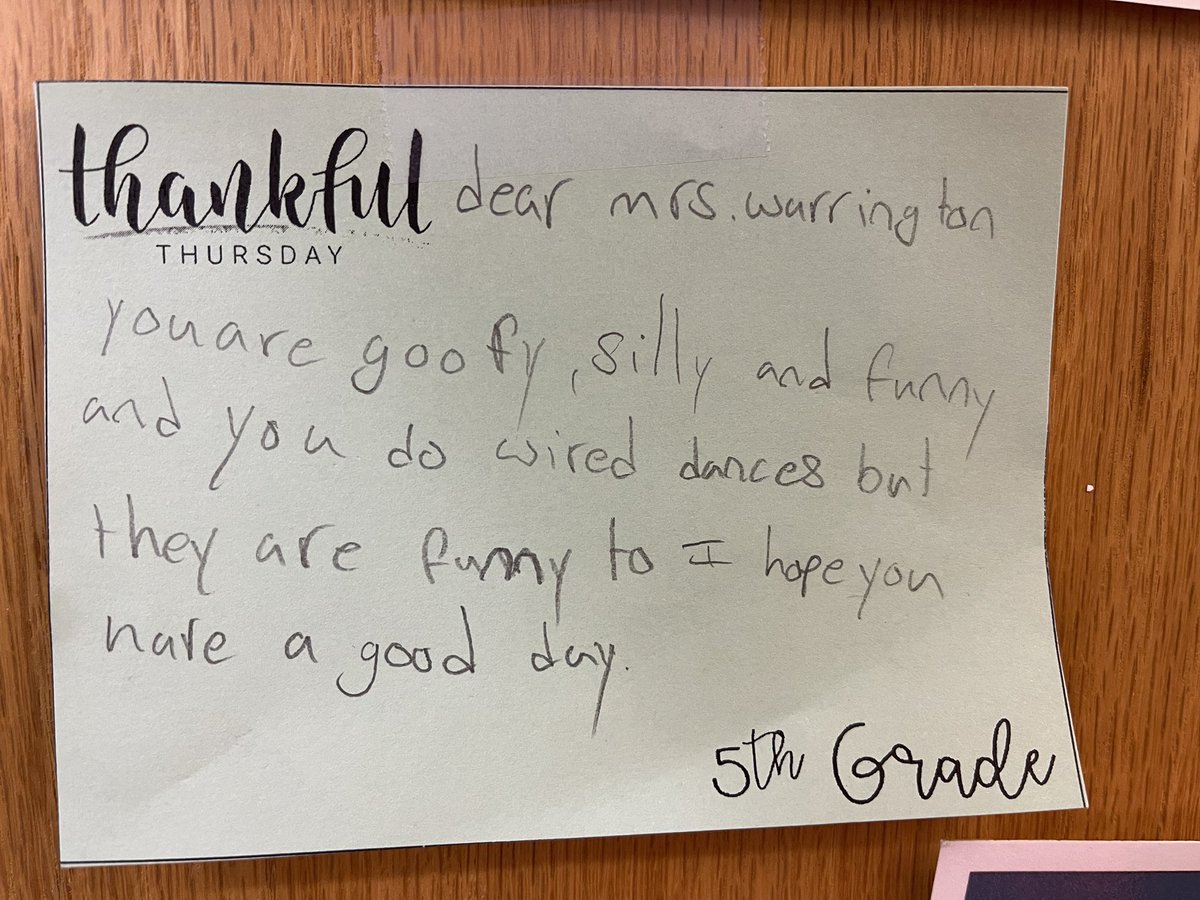 thankful dear mrs. warrington
THURSDAY
you are goofy, silly and funny
and you do wired dances but
they are funny to I hope you
have a good day.
5th Grade